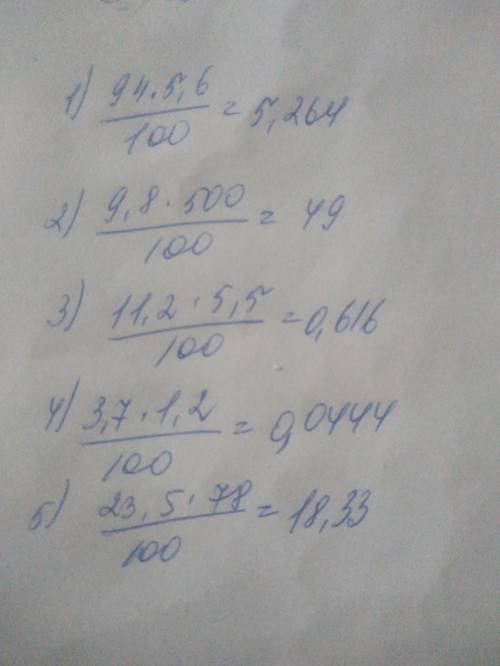 1) 94·5,6/100 = 5,264
2) 9,8·500/100 = 49
3) 11,2·5,5/100 = 0,616
4) 3,7·1,2/100 = 0,0444
5) 23,5·78/100 = 18,33